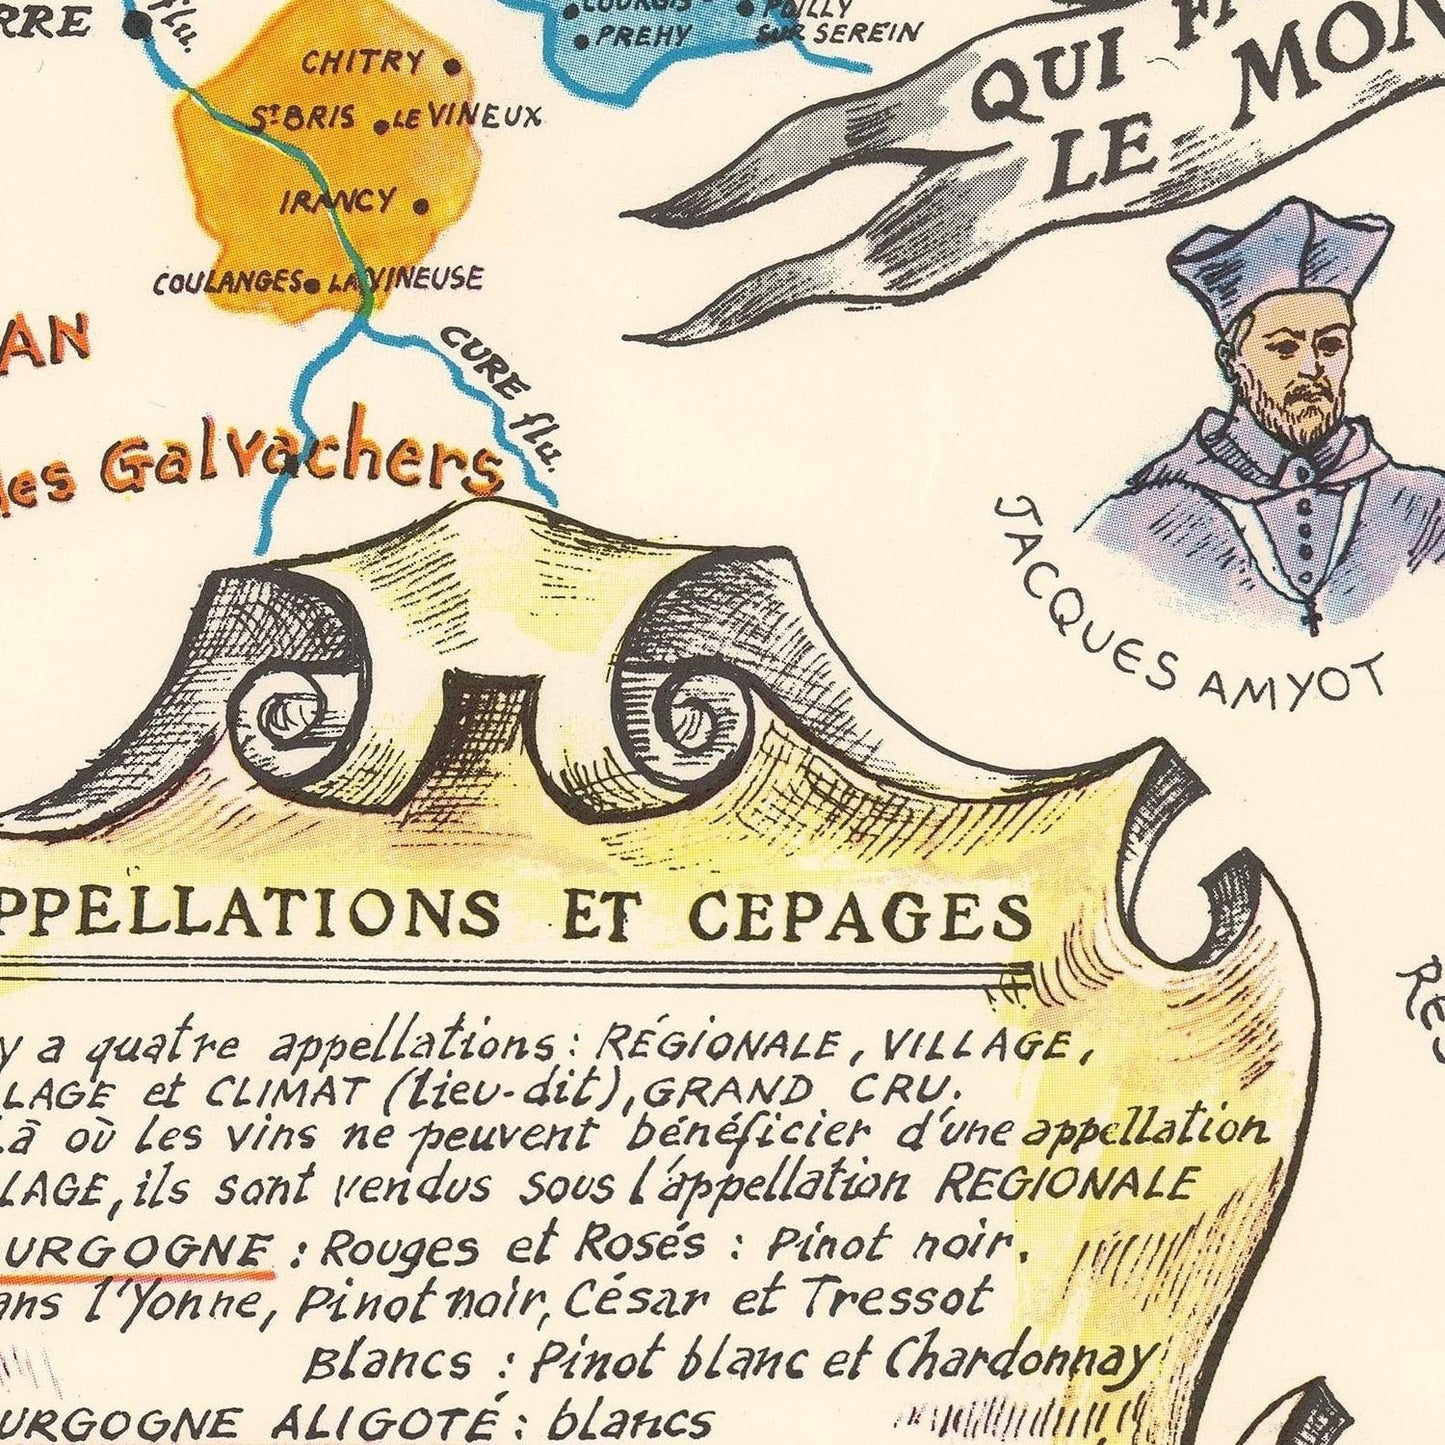 flu.
PREHY
SUR SEREIN
CHITRY
St BRIS LE VINEUX
IRANCY
COULANGES LA VINEUSE
CURE flu.
des Galvachers
QUI
LE
JACQUES AMYOT
APPELLATIONS ET CEPAGES
y a quatre appellations : RÉGIONALE, VILLAGE,
LAGE et CLIMAT (lieu-dit), GRAND CRU.
Là où les vins ne peuvent bénéficier d'une appellation
LAGE, ils sont vendus sous l'appellation REGIONALE
URGOGNE : Rouges et Rosés : Pinot noir.
ans l'Yonne, Pinot noir, César et Tressot
Blancs : Pinot blanc et Chardonnay
URGOGNE ALIGOTÉ : blancs